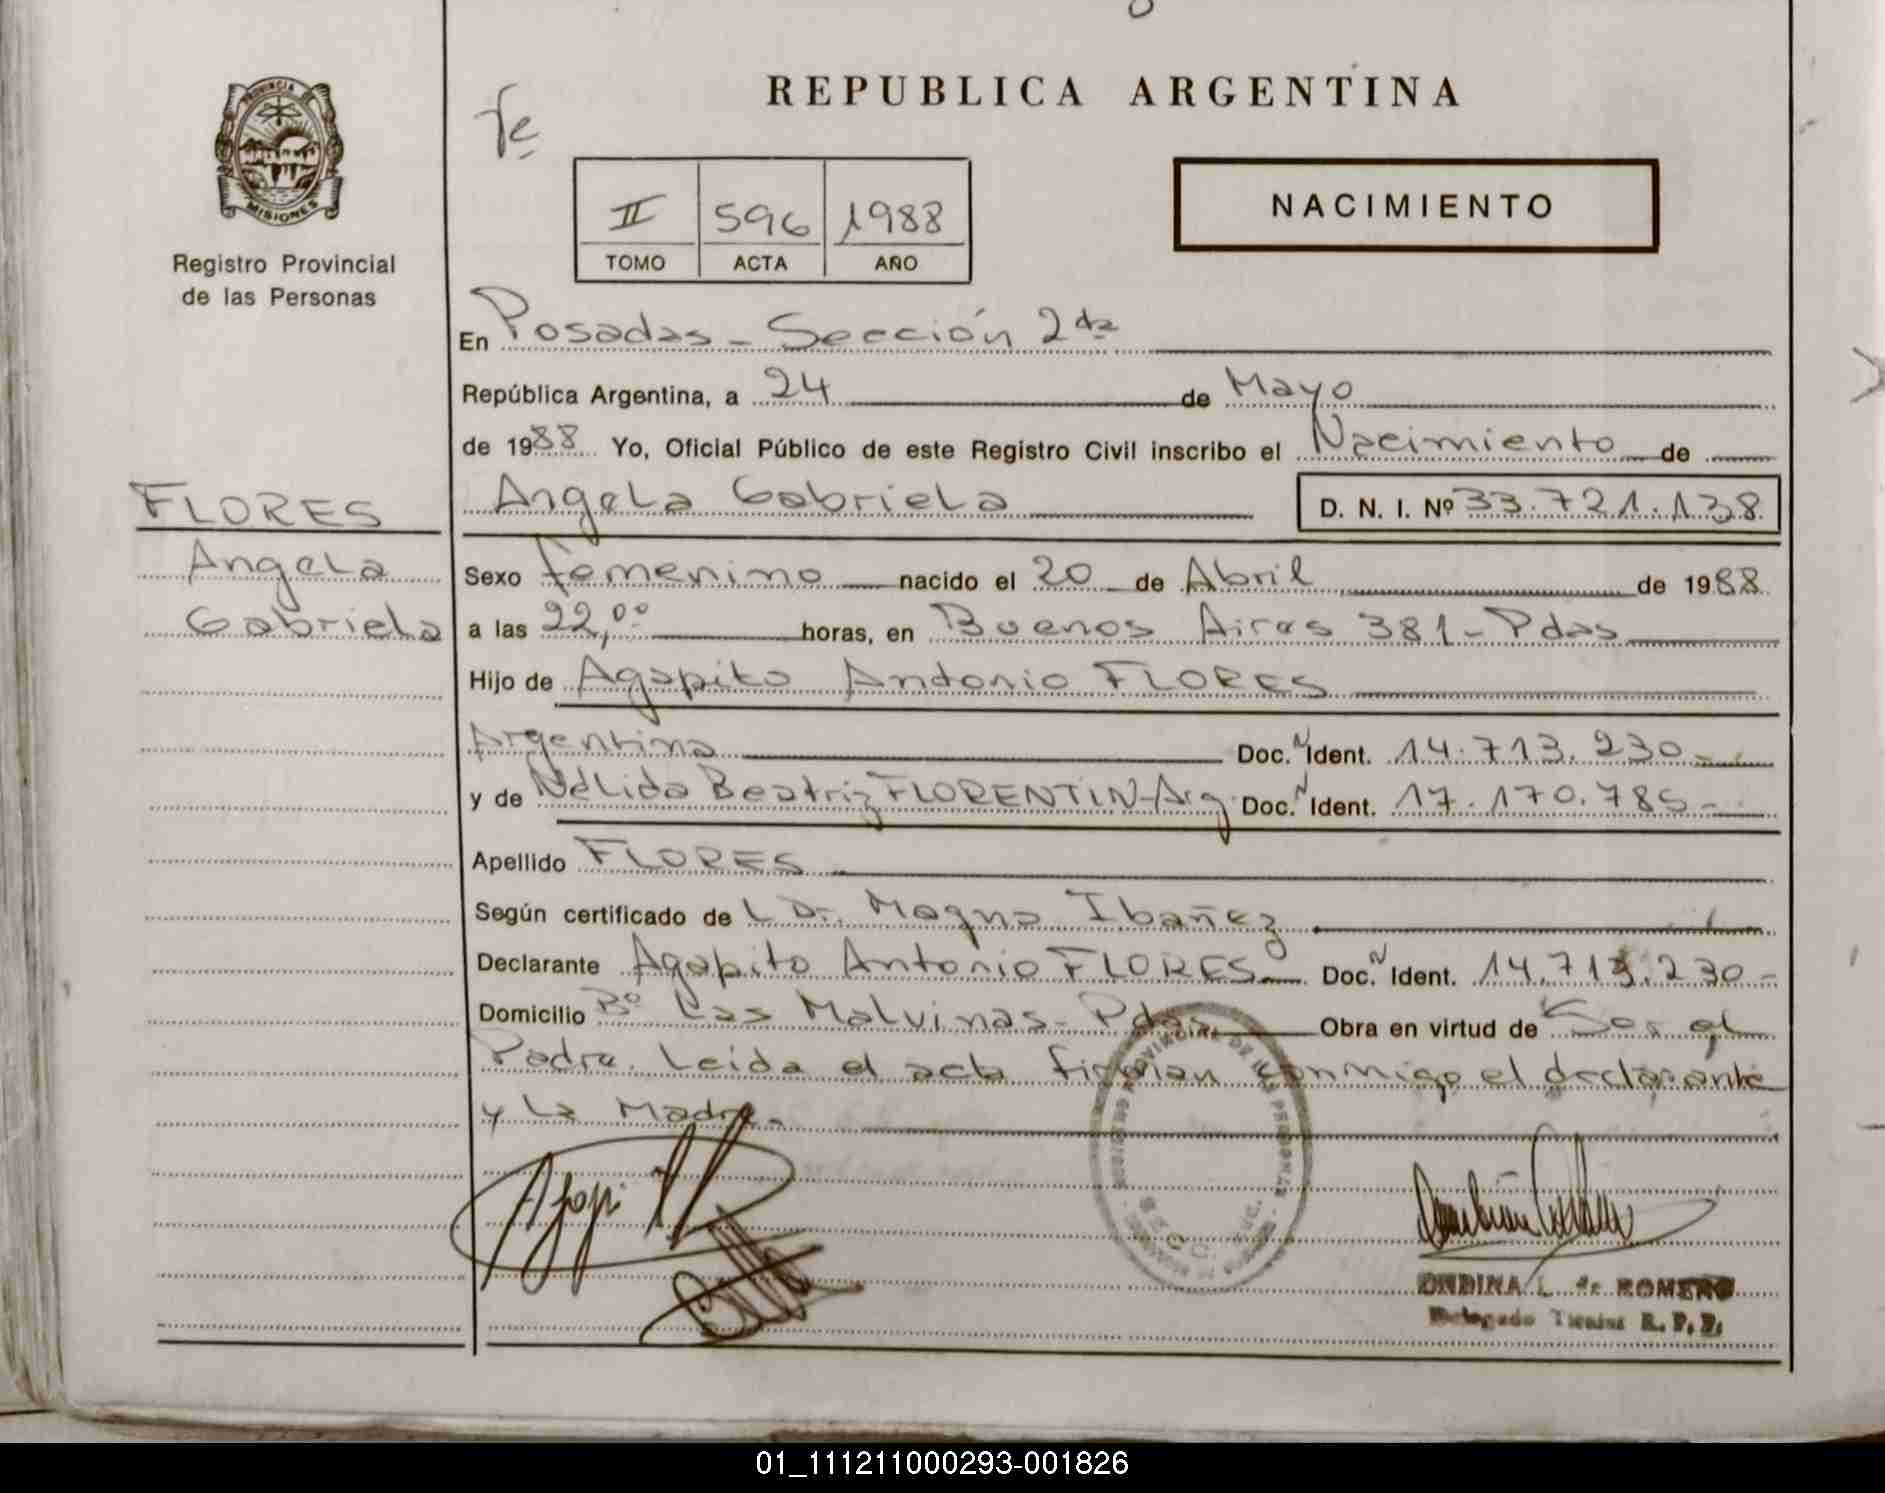 REPUBLICA ARGENTINA
PROVINCIA DE
MISIONES
Registro Provincial
de las Personas
II 596 1988
TOMO ACTA AÑO
NACIMIENTO
En Posadas - Sección 2da
República Argentina, a 24 de Mayo
de 1988 Yo, Oficial Público de este Registro Civil inscribo el Nacimiento de
FLORES
Angela
Gabriela
Angela Gabriela D. N. I. Nº 33.721.138
Sexo femenino nacido el 20 de Abril de 1988
a las 22,00 horas, en Buenos Aires 381 - Pdas
Hijo de Agapito Antonio FLORES
Argentina Doc. N Ident. 14.713.230-
y de Nélida Beatriz FLORENTIN-Arg. Doc. N Ident. 17.170.785-
Apellido FLORES
Según certificado de L Dr. Magno Ibañez
Declarante Agapito Antonio FLORES Doc. N Ident. 14.713.230-
Domicilio Bº Las Malvinas - Pdas Obra en virtud de Ser el
Padre. Leida el acta firman conmigo el declarante
y la Madre.
ONDINA L. de ROMERO
Delegado Titular R. P. P.
01_111211000293-001826